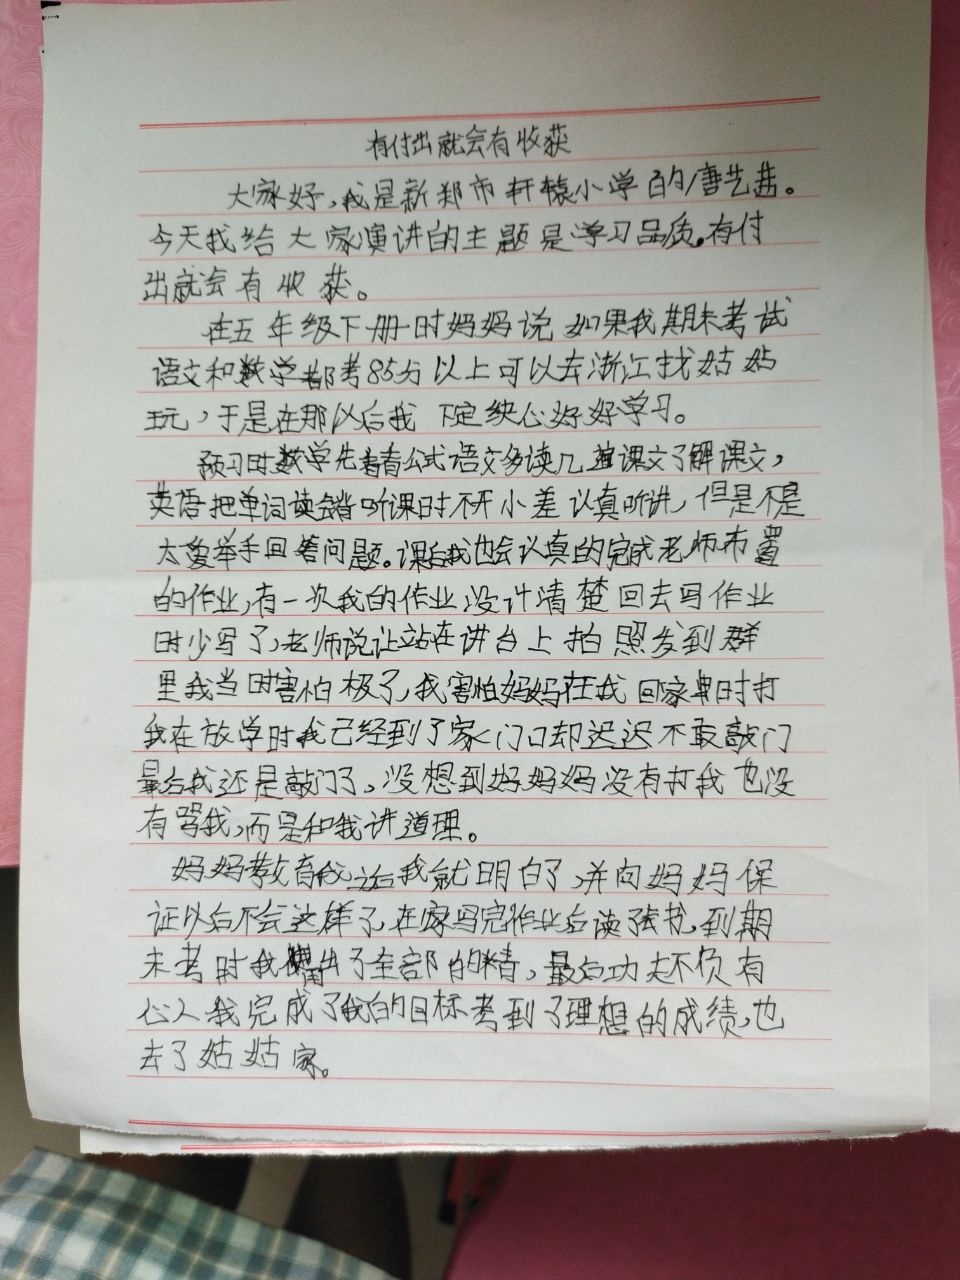 有付出就会有收获
大家好,我是新郑市轩辕小学的唐艺茜。
今天我给大家演讲的主题是学习品质。有付
出就会有收获。
在五年级下册时妈妈说如果我期末考试
语文和数学都考85分以上可以去浙江找姑姑
玩,于是在那以后我下定决心好好学习。
预习时数学先看看公式语文多读几遍课文了解课文,
英语把单词读会背听课时不开小差认真听讲,但是不是
太爱举手回答问题。课后我也会认真的完成老师布置
的作业,有一次我的作业没计清楚回去写作业
时少写了,老师说让站在讲台上拍照发到群
里我当时害怕极了,我害怕妈妈在我回家串时打
我在放学时我已经到了家门口却迟迟不敢敲门
最后我还是敲门了,没想到妈妈妈没有打我也没
有骂我,而是和我讲道理。
妈妈教育我之后我就明白了,并向妈妈保
证以后不会这样了,在家写完作业后读了书,到期
末考时我出了全部的精,最后功夫不负有
心人我完成了我的目标考到了理想的成绩,也
去了姑姑家。